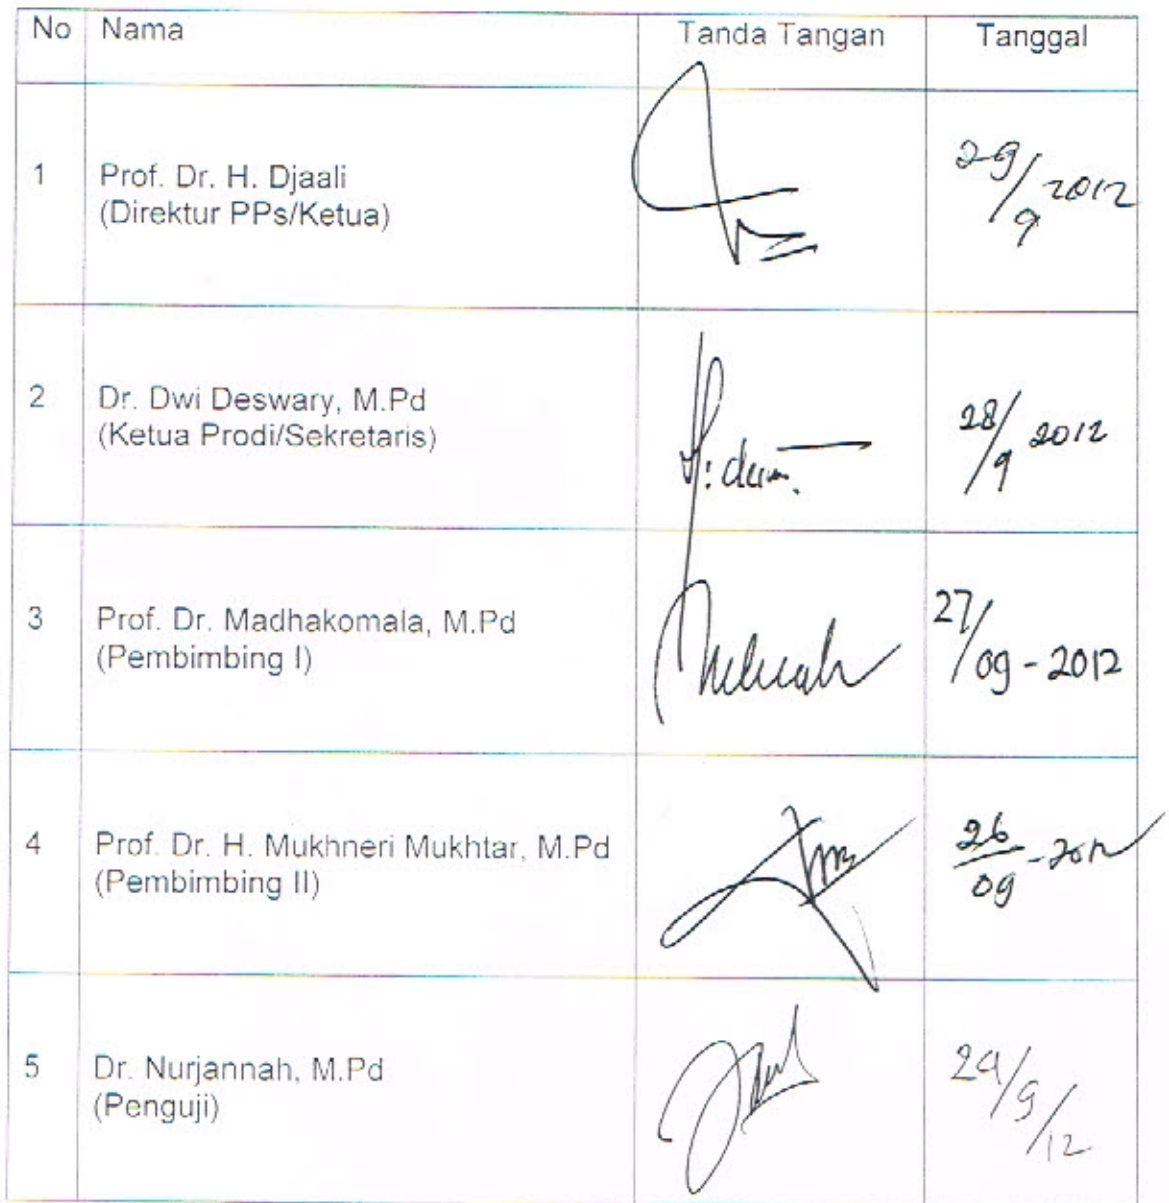 No Nama Tanda Tangan Tanggal
1 Prof. Dr. H. Djaali
(Direktur PPs/Ketua)
29/9 2012
2 Dr. Dwi Deswary, M.Pd
(Ketua Prodi/Sekretaris)
28/9 2012
3 Prof. Dr. Madhakomala, M.Pd
(Pembimbing I)
27/09-2012
4 Prof. Dr. H. Mukhneri Mukhtar, M.Pd
(Pembimbing II)
26/09-2012
5 Dr. Nurjannah, M.Pd
(Penguji)
/9/12